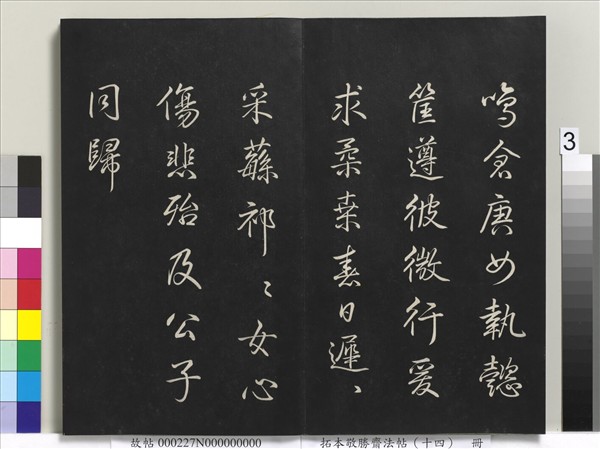 鳴倉庚女執懿
筐遵彼微行爰
求柔桑春日遲〻
采蘩祁〻女心
傷悲殆及公子
同歸
3
故帖 000227N000000000
拓本敬勝齋法帖(十四) 冊